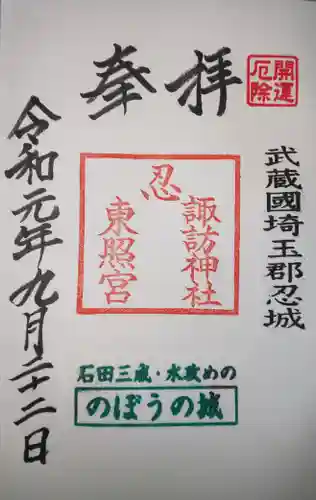 開運
厄除
武蔵國埼玉郡忍城
奉拝
忍
諏訪神社
東照宮
石田三成・水攻めの
のぼうの城
令和元年九月二十二日